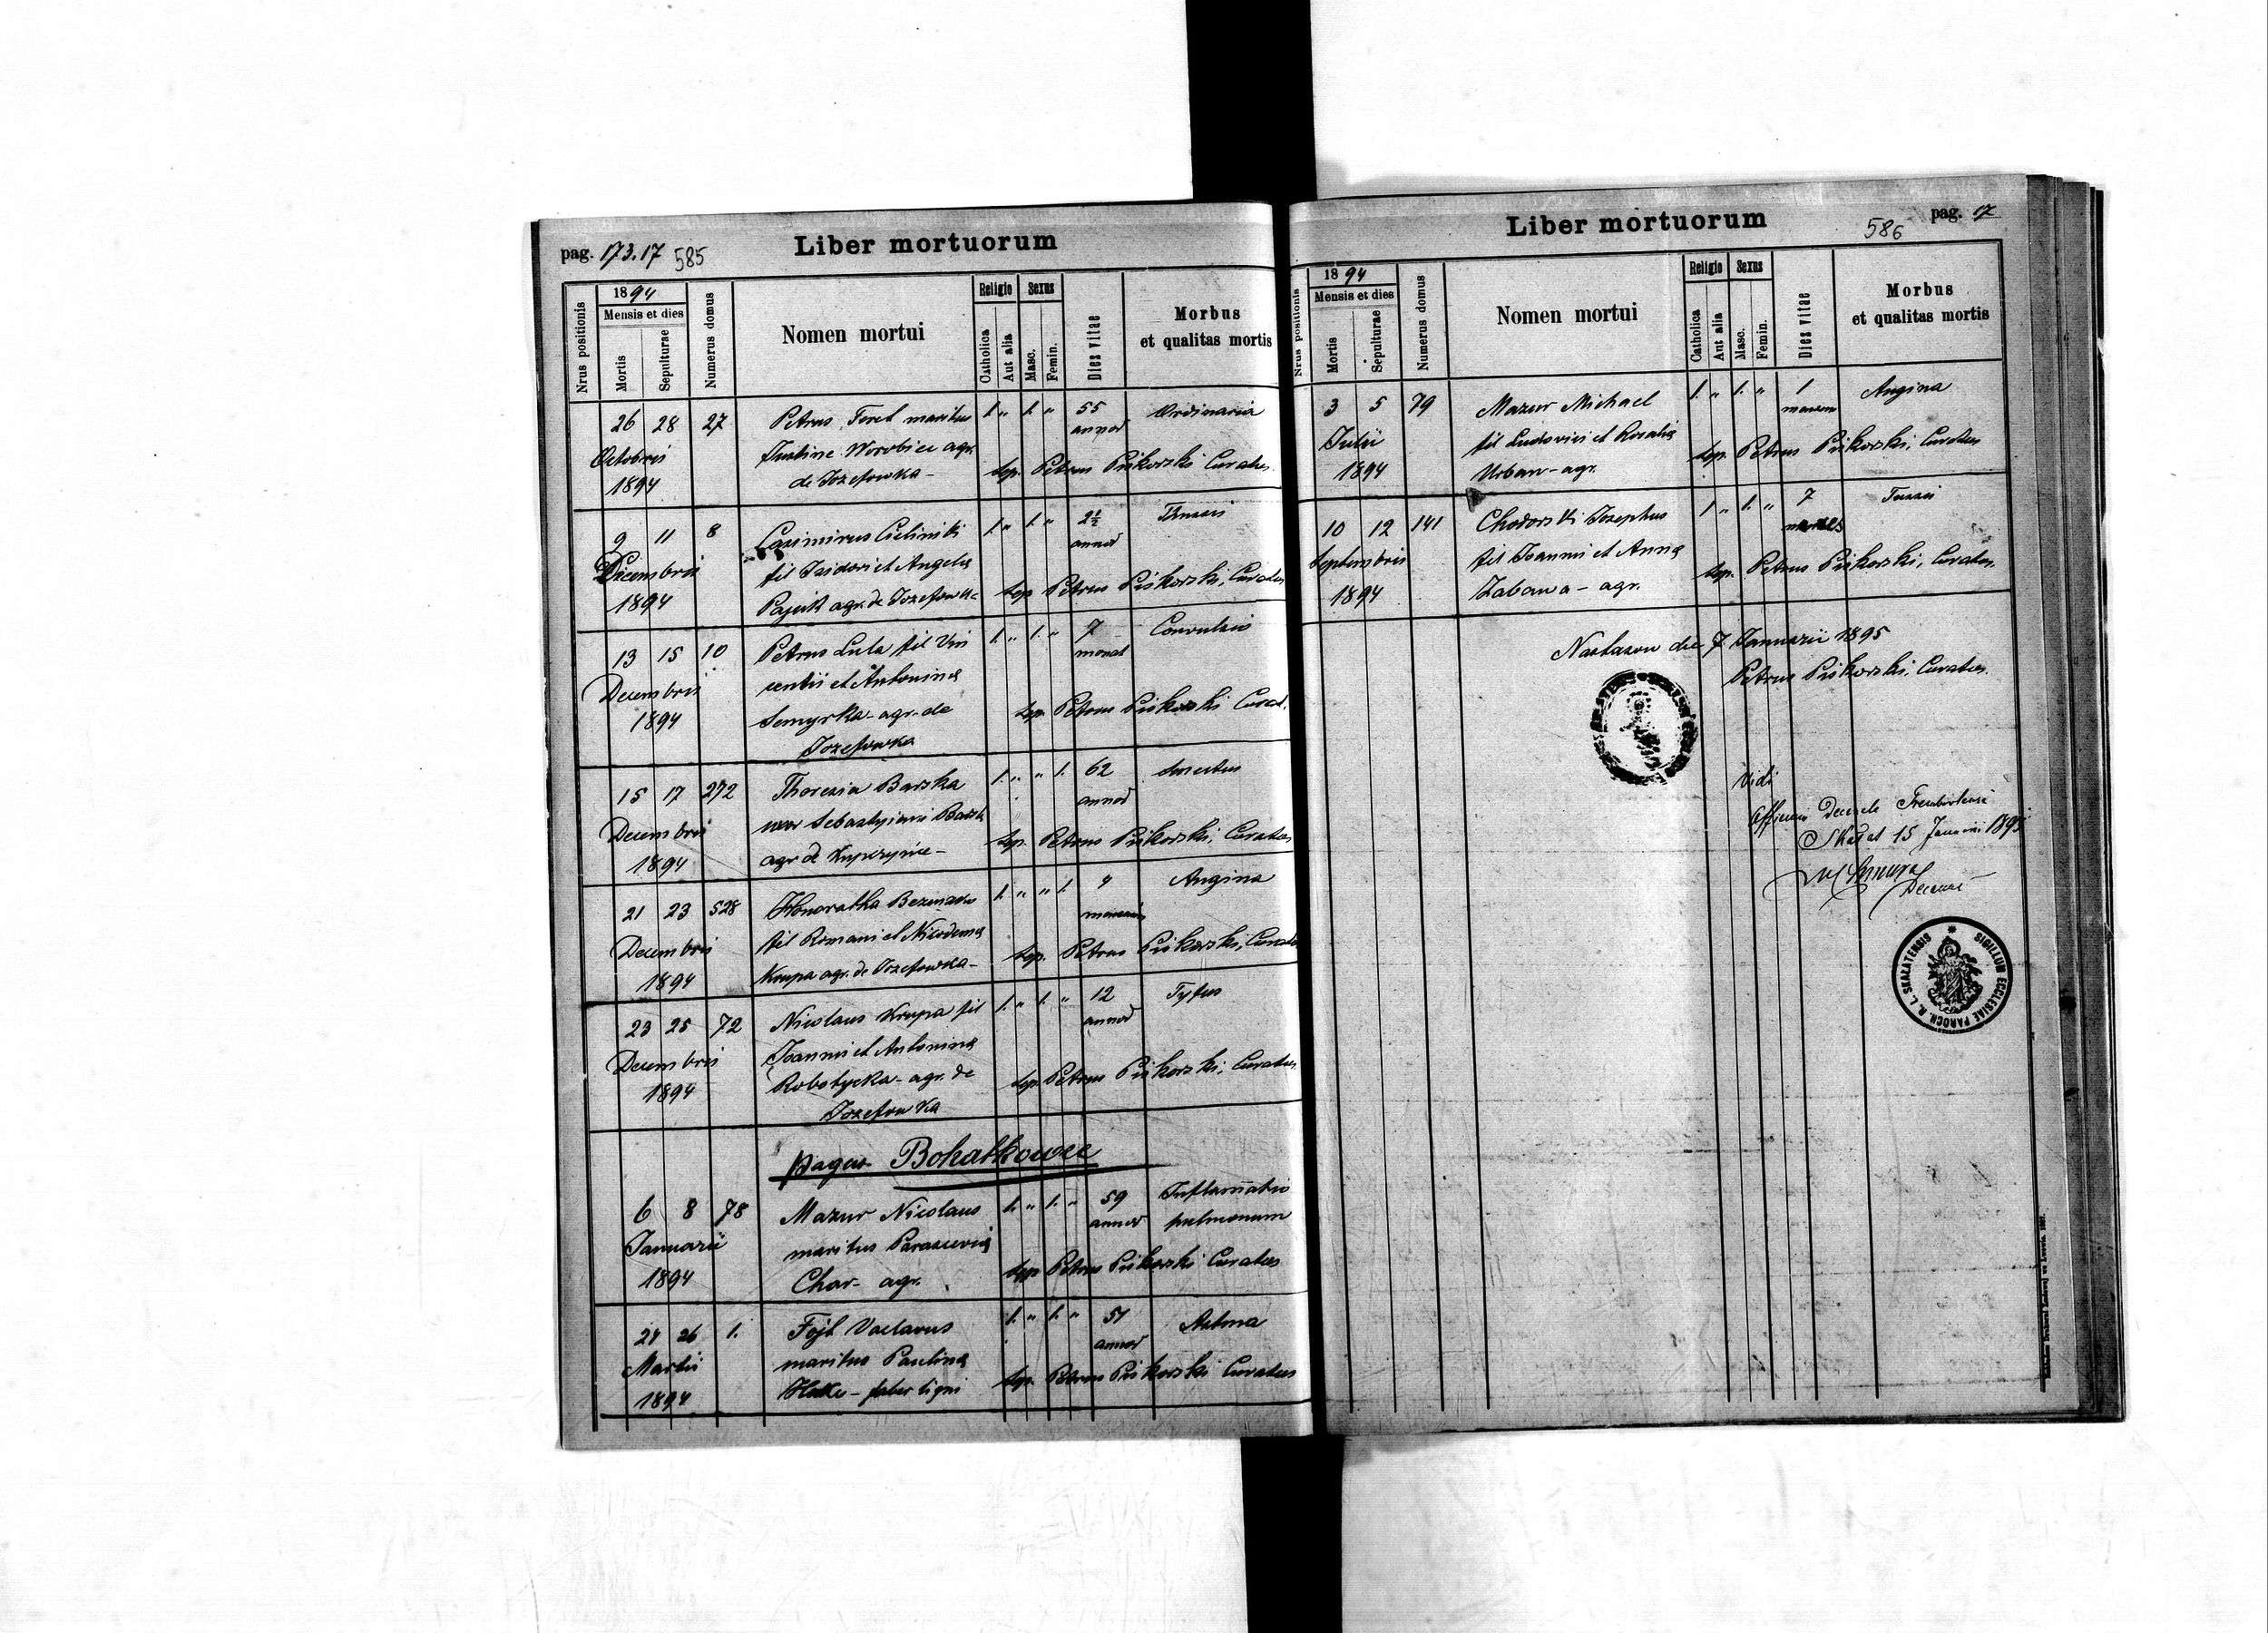 pag. 173.17 585
Liber mortuorum
Nrus positionis
1894
Mensis et dies
Mortis
Sepulturae
Numerus domus
Nomen mortui
Religio
Catholica
Aut alia
Sexus
Masc.
Femin.
Dies vitae
Morbus
et qualitas mortis
26 28 27 Petrus Feret maritus 1. " 1. " 55 Ordinaria
Octobris Justine Worobiec agr. annor
1894 de Jozefowka - sep. Petrus Piskorski Curatus
9 11 8 Casimirus Cieliński 1. " 1. " 2½ Thussis
Decembris fil Isidori et Angela annor
1894 agr. de Jozefowka sep Petrus Piskorski, Curatus
13 15 10 Petrus Lula fil Vin 1. " 1. " 7 Convulsio
Decembris centii et Antonina
1894 Semyrka - agr. de sep. Petrus Piskorski Curat.
Jozefowka
15 17 272 Theresia Barska 1. " " 1. 62
Decembris uxor Sebastyiani annor
1894 agr de sep. Petrus Piskorski, Curatus
21 23 528 Honoratha 1. " " 1. 4 Angina
Decembris fil Romani et Nicodema
1894 Krupa agr. de Jozefowka - sep. Petrus Piskorski, Curatus
23 25 72 Nicolaus Krupa fil 1. " 1. " 12 Tyfus
Decembris Joannis et Antonina annor
1894 Robotycka - agr. de sep. Petrus Piskorski, Curatus
Jozefowka
pagus Bohatkowce
6 8 78 Mazur Nicolaus 1. " 1. " 59 Inflamatio
Januarii maritus Parascevia annor pulmonum
1894 Char - agr. sep Petrus Piskorski Curatus
24 26 1. Fojt Vaclavus 1. " 1. " 51 Astma
Martii maritus Paulina annor
1894 - faber ligni sep. Petrus Piskorski Curatus
Liber mortuorum
586 pag. 17
Nrus positionis
1894
Mensis et dies
Mortis
Sepulturae
Numerus domus
Nomen mortui
Religio
Catholica
Aut alia
Sexus
Masc.
Femin.
Dies vitae
Morbus
et qualitas mortis
3 5 79 Mazur Michael 1. " 1. " 1 Angina
Julii fil Ludovici et Rosalia
1894 Urban - agr. sep. Petrus Piskorski, Curatus
10 12 141 Chodorski Josephus 1 " 1. " 7 Tussis
Septembris fil Joannis et Anna
1894 Zabawa - agr. sep. Petrus Piskorski, Curatus.
Nastasow die 7 Januarii 1895
Petrus Piskorski, Curatus.
Vidi
Officium Decanale
Skałat 15 Januarii 1895
SIGILLUM ECCLESIAE PAROCH. R. L. SKALATENSIS